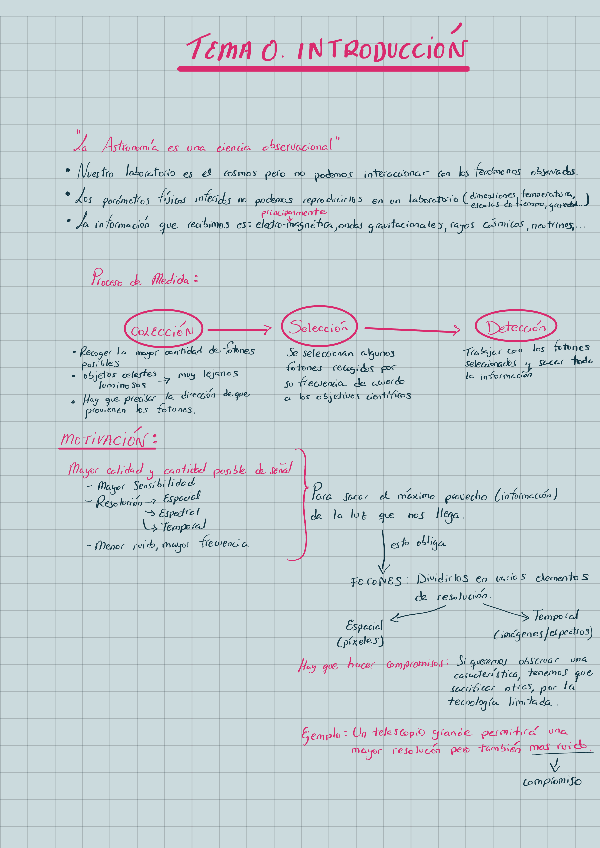 TEMA 0. INTRODUCCIÓN
"La Astronomía es una ciencia observacional"
• Nuestro laboratorio es el cosmos pero no podemos interaccionar con los fenómenos observados.
• Los parámetros físicos inferidos no podemos reproducirlos en un laboratorio (dimensiones, temperatura,
escalas de tiempo,
principalmente
• La información que recibimos es: electro-magnética, ondas gravitacionales, rayos cósmicos, neutrinos,...
Proceso de Medida:
COLECCIÓN → Selección → Detección
• Recoger la mayor cantidad de fotones
posibles
• objetos celestes → muy lejanos
luminosos
• Hay que precisar la dirección de que
provienen los fotones.
Se seleccionan algunos
fotones recogidos por
su frecuencia de acuerdo
a los objetivos científicos
Trabajar con los fotones
seleccionados y sacar toda
la información
MOTIVACIÓN:
Mayor calidad y cantidad posible de señal
- Mayor Sensibilidad
- Resolución → Espacial
→ Espectral
→ Temporal
- Menor ruido, mayor frecuencia.
Para sacar el máximo provecho (información)
de la luz que nos llega.
esto obliga
FOTONES: Dividirlos en varios elementos
de resolución.
Espacial
(píxeles)
Temporal
(imágenes/espectros)
Hay que hacer compromisos: Si queremos observar una
característica, tenemos que
sacrificar otras, por la
tecnología limitada.
Ejemplo: Un telescopio grande permitirá una
mayor resolucón pero también mas ruido.
compromiso